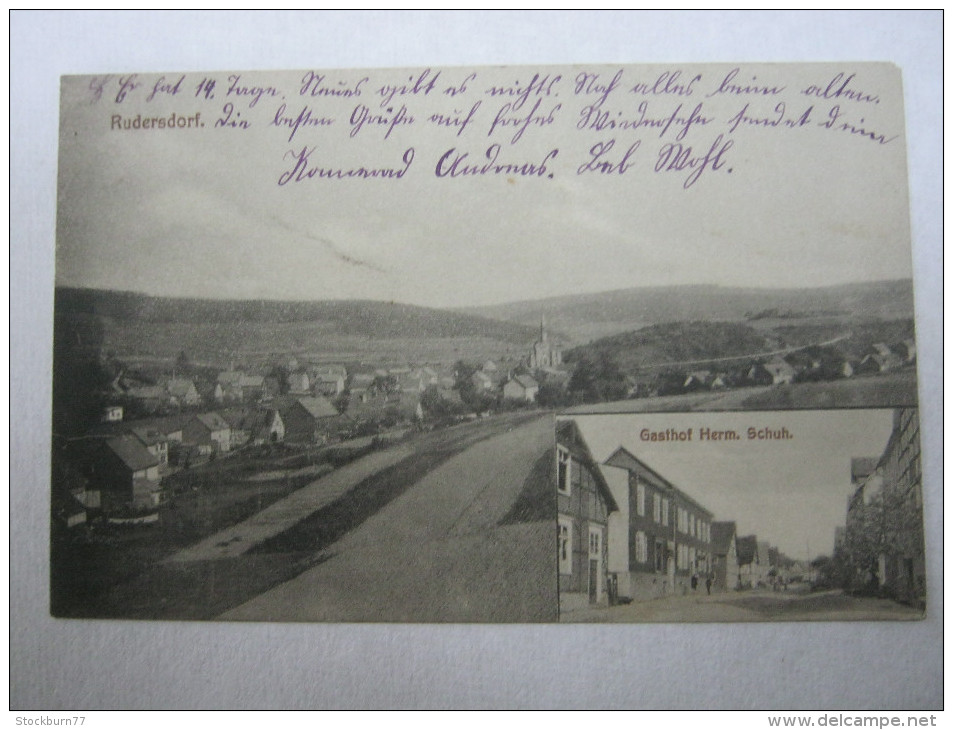 Er hat 14. Tage. Neues gibt es nichts. Noch alles beim alten.
Rudersdorf. Die besten Grüße auf frohes Wiedersehn sendet dein
Kamerad Andreas. Leb Wohl.
Gasthof Herm. Schuh.
Stockburn77
www.delcampe.net